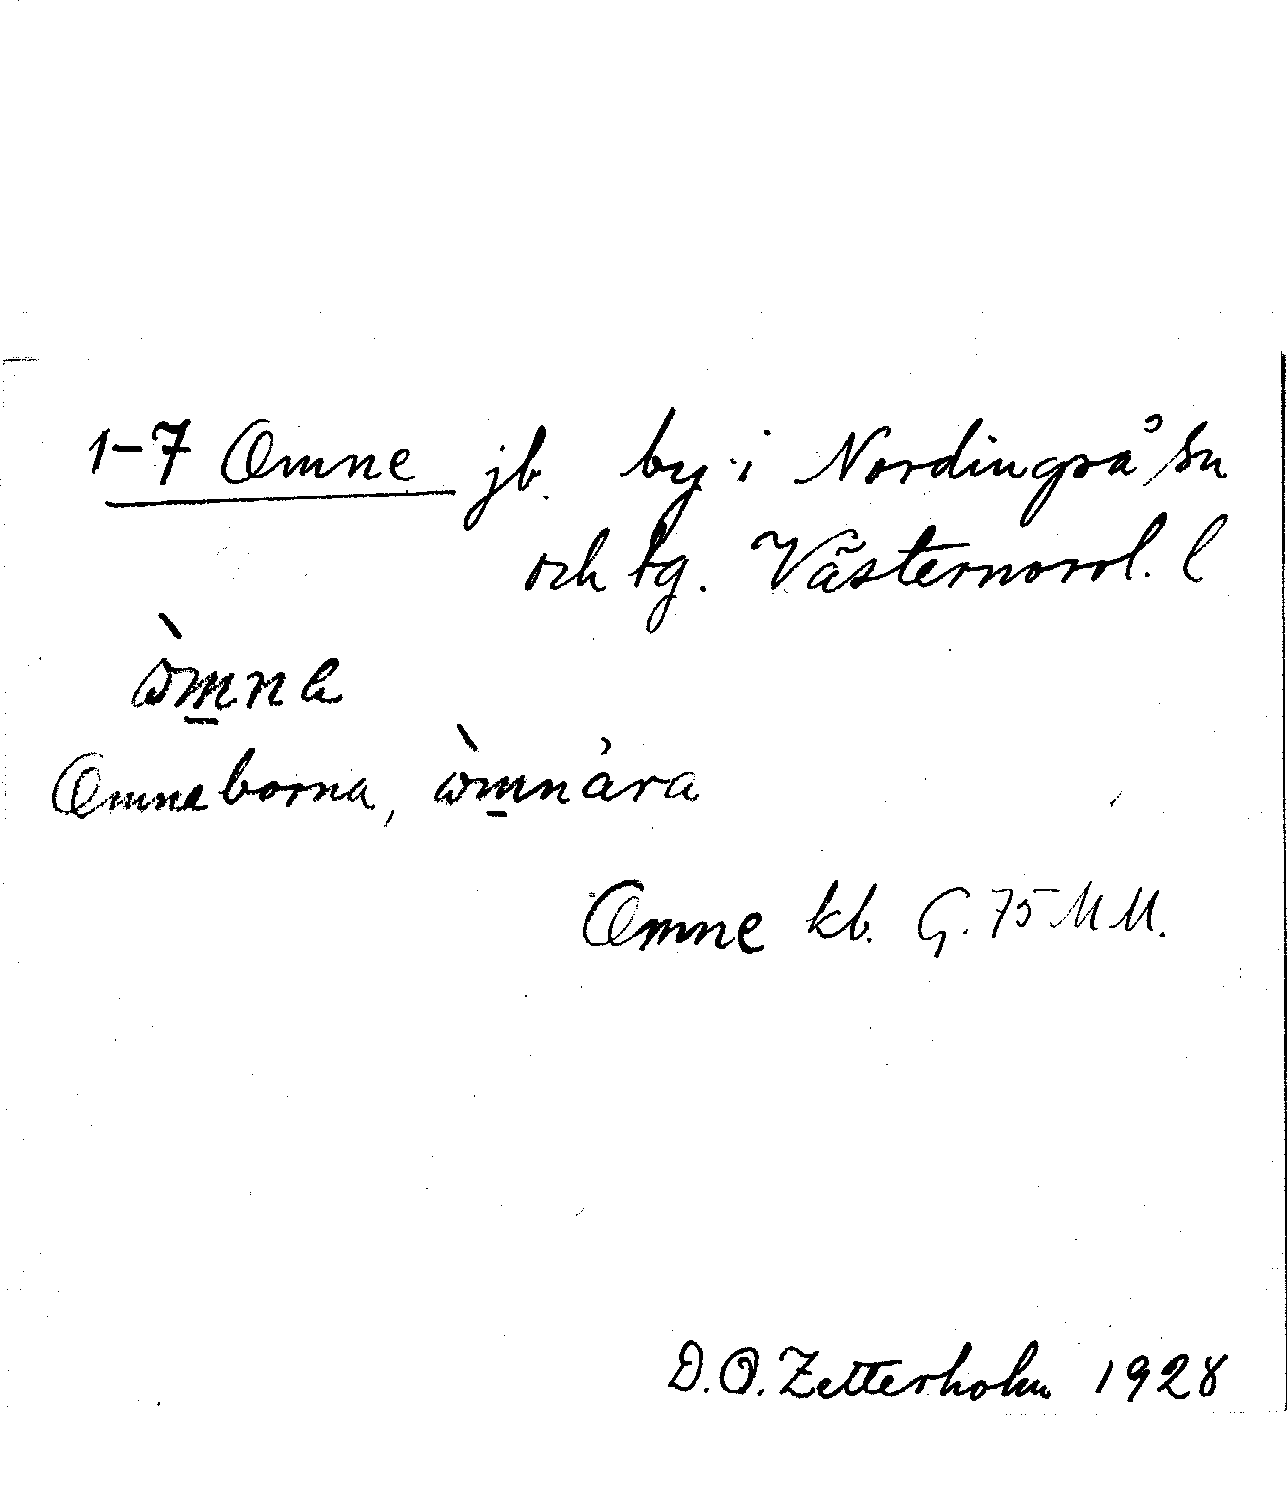 1-7 Omne jb. by i Nordingrå sn
och tg. Västernorrl. l
ὼmne
Omneborna, ὼmnåra
Omne kb. G. 75 MM.
D.O. Zetterholm 1928